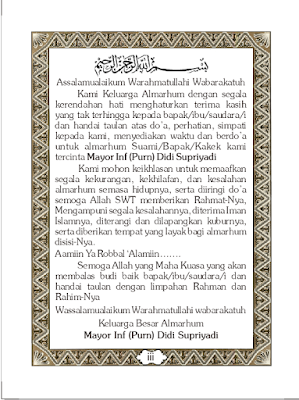 بسم الله الرحمن الرحيم
Assalamualaikum Warahmatullahi Wabarakatuh
Kami Keluarga Almarhum dengan segala
kerendahan hati menghaturkan terima kasih
yang tak terhingga kepada bapak/ibu/saudara/i
dan handai taulan atas do'a, perhatian, simpati
kepada kami, menyediakan waktu dan berdo'a
untuk almarhum Suami/Bapak/Kakek kami
tercinta Mayor Inf (Purn) Didi Supriyadi
Kami mohon keikhlasan untuk memaafkan
segala kekurangan, kekhilafan, dan kesalahan
almarhum semasa hidupnya, serta diiringi do'a
semoga Allah SWT memberikan Rahmat-Nya,
Mengampuni segala kesalahannya, diterima Iman
Islamnya, diterangi dan dilapangkan kuburnya,
serta diberikan tempat yang layak bagi almarhum
disisi-Nya.
Aamiin Ya Robbal 'Alamiin…….
Semoga Allah yang Maha Kuasa yang akan
membalas budi baik bapak/ibu/saudara/i dan
handai taulan dengan limpahan Rahman dan
Rahim-Nya
Wassalamualaikum Warahmatullahi wabarakatuh
Keluarga Besar Almarhum
Mayor Inf (Purn) Didi Supriyadi
iii